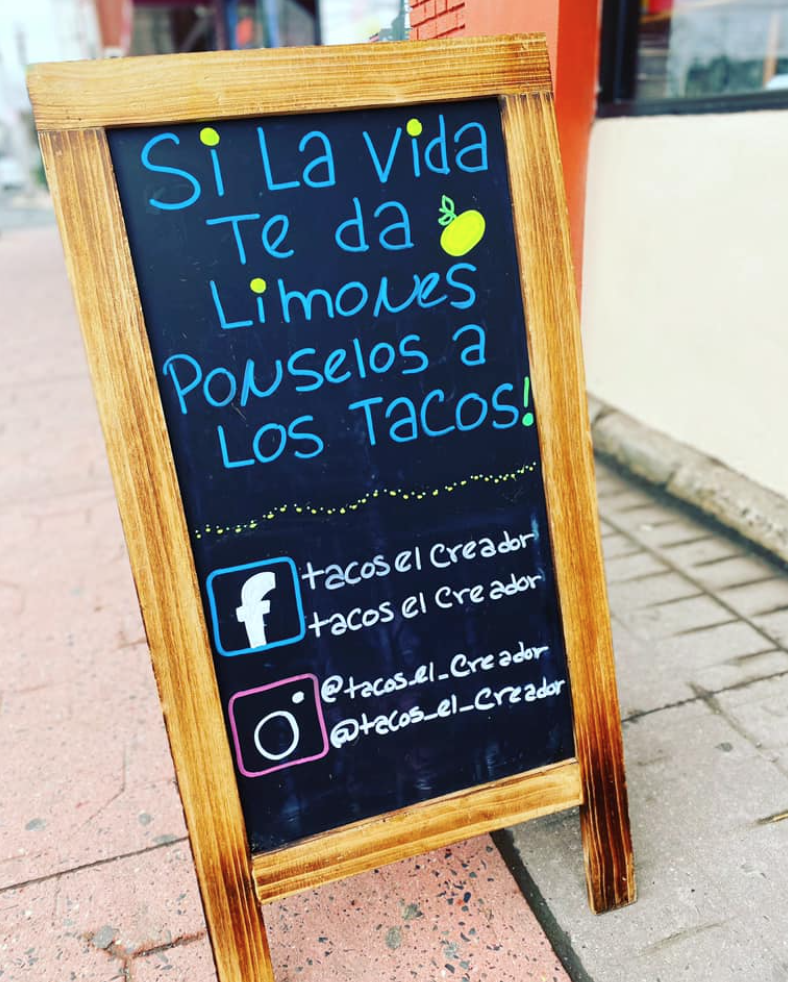 Si La vida
Te da
Limones
Ponselos a
Los Tacos!
f tacos el Creador
tacos el Creador
@tacos_el_Creador
@tacos_el_Creador